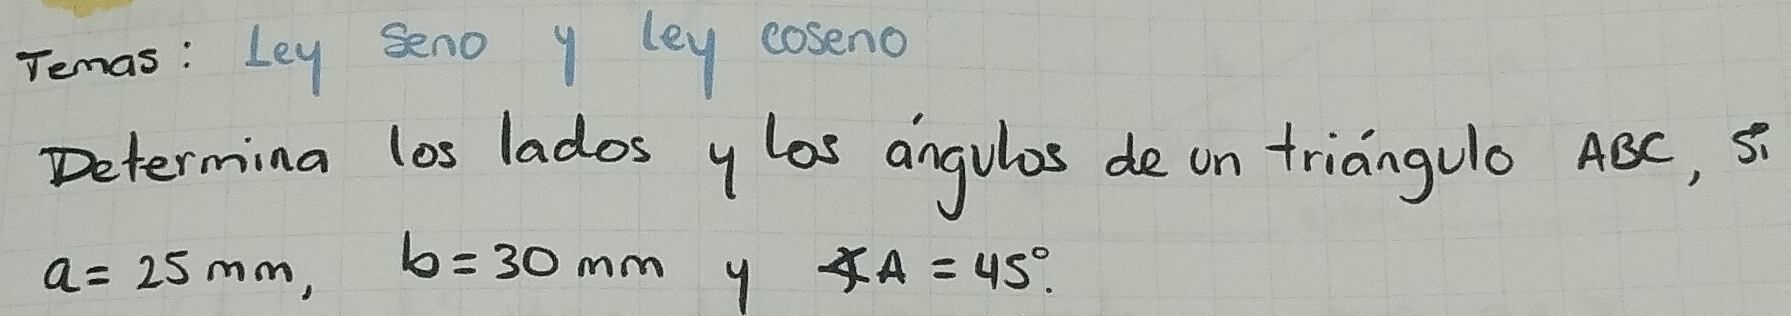 Temas: Ley seno y ley coseno
Determina los lados y los ángulos de un triángulo ABC, si
a = 25 mm, b = 30 mm y ∢A = 45°.